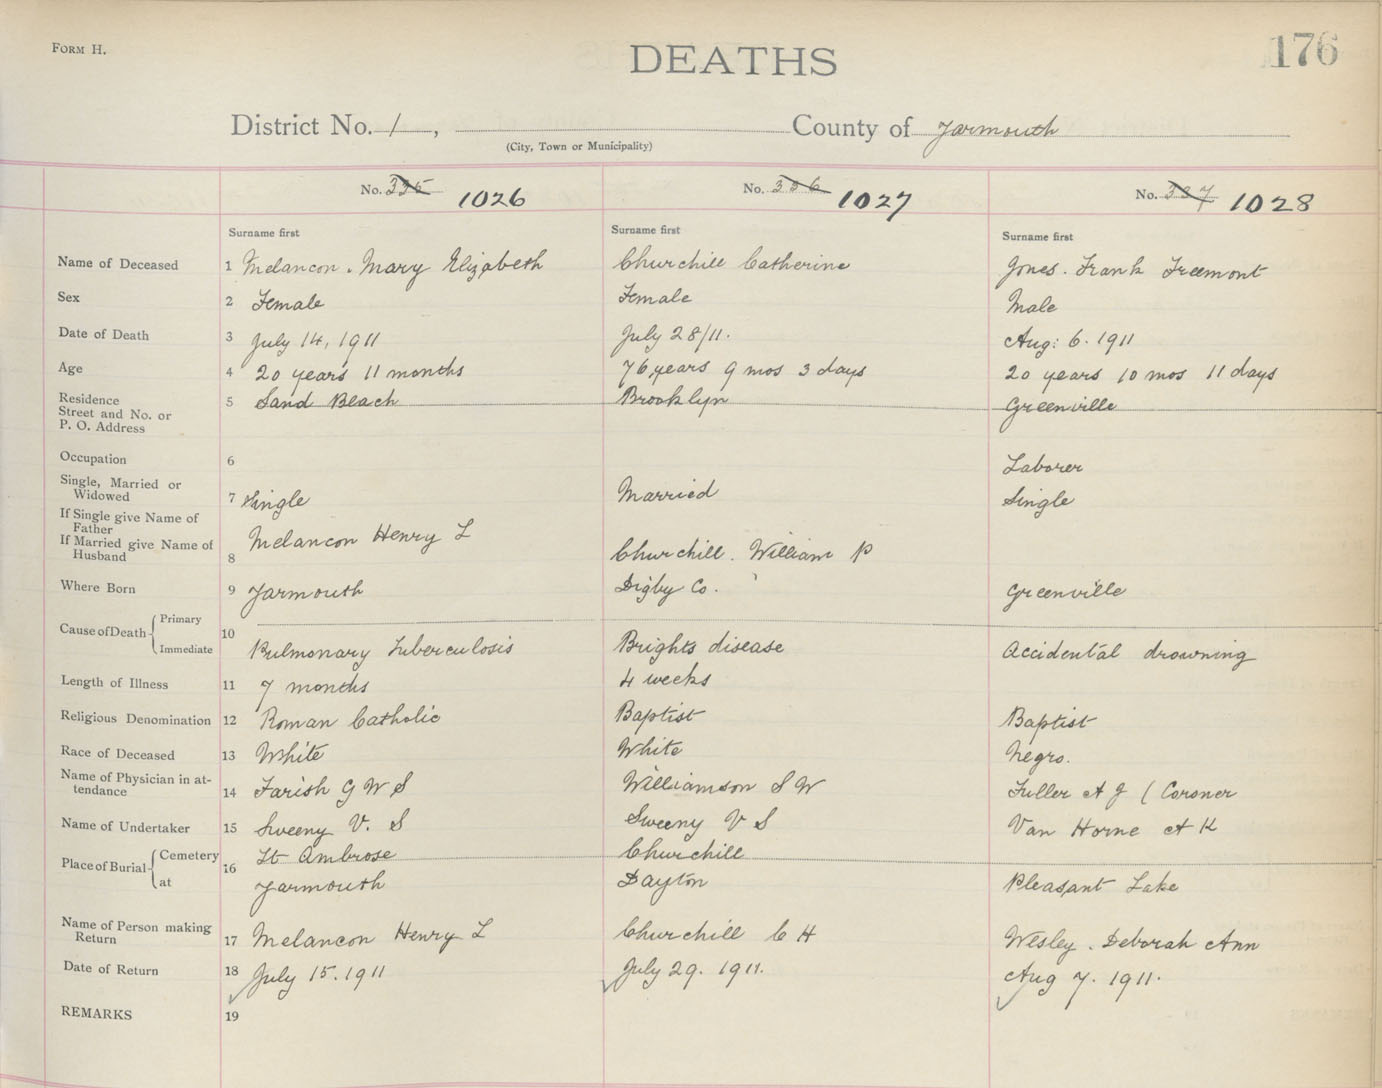 FORM H.
DEATHS
176
District No. 1, County of Yarmouth
(City, Town or Municipality)
No. 335 1026 No. 336 1027 No. 337 1028
Surname first Surname first Surname first
Name of Deceased 1 Melancon. Mary Elizabeth Churchill Catherine Jones. Frank Freemont
Sex 2 Female Female Male
Date of Death 3 July 14, 1911 July 28/11. Aug: 6. 1911
Age 4 20 years 11 months 76 years 9 mos 3 days 20 years 10 mos 11 days
Residence 5 Sand Beach Brooklyn Greenville
Street and No. or
P. O. Address
Occupation 6 Laborer
Single, Married or
Widowed 7 Single Married Single
If Single give Name of
Father
If Married give Name of
Husband 8 Melancon Henry L Churchill. William P
Where Born 9 Yarmouth Digby Co. Greenville
Cause of Death Primary
10
Immediate Pulmonary Tuberculosis Brights disease Accidental drowning
Length of Illness 11 7 months 4 weeks
Religious Denomination 12 Roman Catholic Baptist Baptist
Race of Deceased 13 White White Negro.
Name of Physician in at-
tendance 14 Farish G W S Williamson S W Fuller A J ( Coroner
Name of Undertaker 15 Sweeny V. S Sweeny V S Van Horne A K
Place of Burial Cemetery 16 St Ambrose Churchill
at Yarmouth Dayton Pleasant Lake
Name of Person making
Return 17 Melancon Henry L Churchill C H Wesley. Deborah Ann
Date of Return 18 July 15. 1911 July 29. 1911. Aug 7. 1911.
REMARKS 19